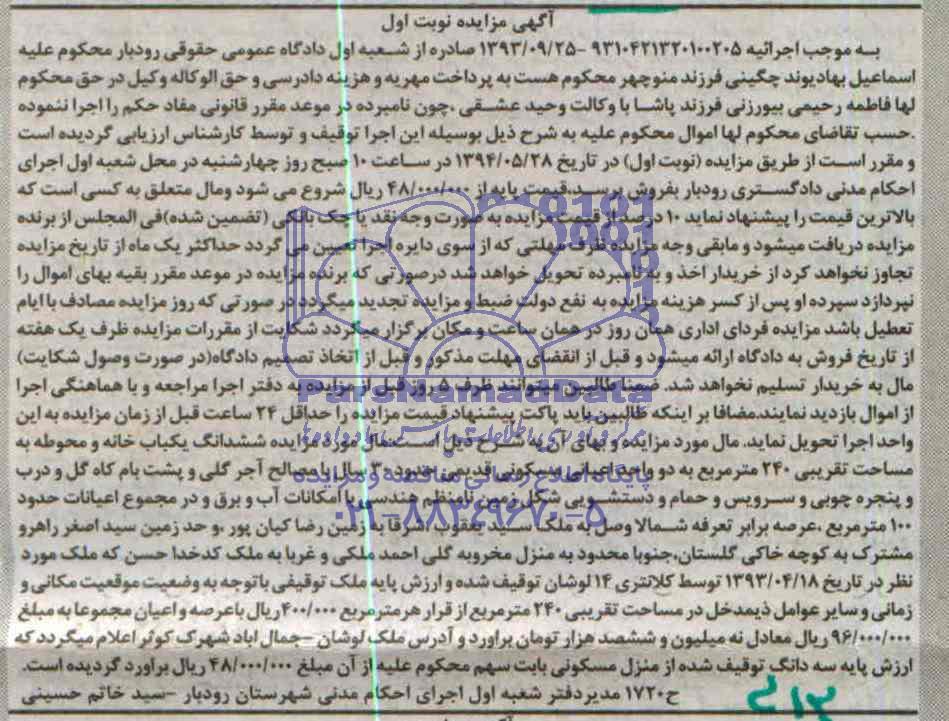 آگهی مزایده نوبت اول
به موجب اجرائیه ۹۳۱۰۴۲۱۳۲۰۱۰۰۲۰۵ -۱۳۹۳/۰۹/۲۵ صادره از شعبه اول دادگاه عمومی حقوقی رودبار محکوم علیه
اسماعیل بهادیوند چگینی فرزند منوچهر محکوم هست به پرداخت مهریه و هزینه دادرسی و حق الوکاله وکیل در حق محکوم
لها فاطمه رحیمی بیورزنی فرزند پاشا با وکالت وحید عشقی ،چون نامبرده در موعد مقرر قانونی مفاد حکم را اجرا ننموده
.حسب تقاضای محکوم لها اموال محکوم علیه به شرح ذیل بوسیله این اجرا توقیف و توسط کارشناس ارزیابی گردیده است
و مقرر است از طریق مزایده (نوبت اول) در تاریخ ۱۳۹۴/۰۵/۲۸ در ساعت ۱۰ صبح روز چهارشنبه در محل شعبه اول اجرای
احکام مدنی دادگستری رودبار بفروش برسد،قیمت پایه از ۴۸/۰۰۰/۰۰۰ ریال شروع می شود ومال متعلق به کسی است که
بالاترین قیمت را پیشنهاد نماید ۱۰ درصد از قیمت مزایده به صورت وجه نقد یا چک بانکی (تضمین شده)فی المجلس از برنده
مزایده دریافت میشود و مابقی وجه مزایده ظرف مهلتی که از سوی دایره اجرا تعیین می گردد حداکثر یک ماه از تاریخ مزایده
تجاوز نخواهد کرد از خریدار اخذ و به نامبرده تحویل خواهد شد درصورتی که برنده مزایده در موعد مقرر بقیه بهای اموال را
نپردازد سپرده او پس از کسر هزینه مزایده به نفع دولت ضبط و مزایده تجدید میگردد در صورتی که روز مزایده مصادف با ایام
تعطیل باشد مزایده فردای اداری همان روز در همان ساعت و مکان برگزار میگردد شکایت از مقررات مزایده ظرف یک هفته
از تاریخ فروش به دادگاه ارائه میشود و قبل از انقضای مهلت مذکور و قبل از اتخاذ تصمیم دادگاه(در صورت وصول شکایت)
مال به خریدار تسلیم نخواهد شد. ضمنا طالبین میتوانند ظرف ۵ روز قبل از مزایده به دفتر اجرا مراجعه و با هماهنگی اجرا
از اموال بازدید نمایند.مضافا بر اینکه طالبین باید پاکت پیشنهاد قیمت مزایده را حداقل ۲۴ ساعت قبل از زمان مزایده به این
واحد اجرا تحویل نماید. مال مورد مزایده و بهای آن به شرح ذیل است:مال مورد مزایده ششدانگ یکباب خانه و محوطه به
مساحت تقریبی ۲۴۰ مترمربع به دو واحد اعیانی مسکونی قدیمی حدود ۳۰ سال با مصالح آجر گلی و پشت بام کاه گل و درب
و پنجره چوبی و سرویس و حمام و دستشویی شکل زمین نامنظم هندسی با امکانات آب و برق و در مجموع اعیانات حدود
۱۰۰ مترمربع ،عرصه برابر تعرفه شمالا وصل به ملک سید یعقوب ،شرقا به زمین رضا کیان پور ،و حد زمین سید اصغر راهرو
مشترک به کوچه خاکی گلستان،جنوبا محدود به منزل مخروبه گلی احمد ملکی و غربا به ملک کدخدا حسن که ملک مورد
نظر در تاریخ ۱۳۹۳/۰۴/۱۸ توسط کلانتری ۱۴ لوشان توقیف شده و ارزش پایه ملک توقیفی باتوجه به وضعیت موقعیت مکانی و
زمانی و سایر عوامل ذیمدخل در مساحت تقریبی ۲۴۰ مترمربع از قرار هر مترمربع ۴۰۰/۰۰۰ریال باعرصه و اعیان مجموعا به مبلغ
۹۶/۰۰۰/۰۰۰ ریال معادل نه میلیون و ششصد هزار تومان براورد و آدرس ملک لوشان –جمال اباد شهرک کوثر اعلام میگردد که
ارزش پایه سه دانگ توقیف شده از منزل مسکونی بابت سهم محکوم علیه از آن مبلغ ۴۸/۰۰۰/۰۰۰ ریال براورد گردیده است.
ح۱۷۲۰ مدیردفتر شعبه اول اجرای احکام مدنی شهرستان رودبار –سید خاتم حسینی
ParsNamadData
پایگاه اطلاع رسانی مناقصه و مزایده
۰۲۱-۸۸۳۴۹۶۷۰-۵